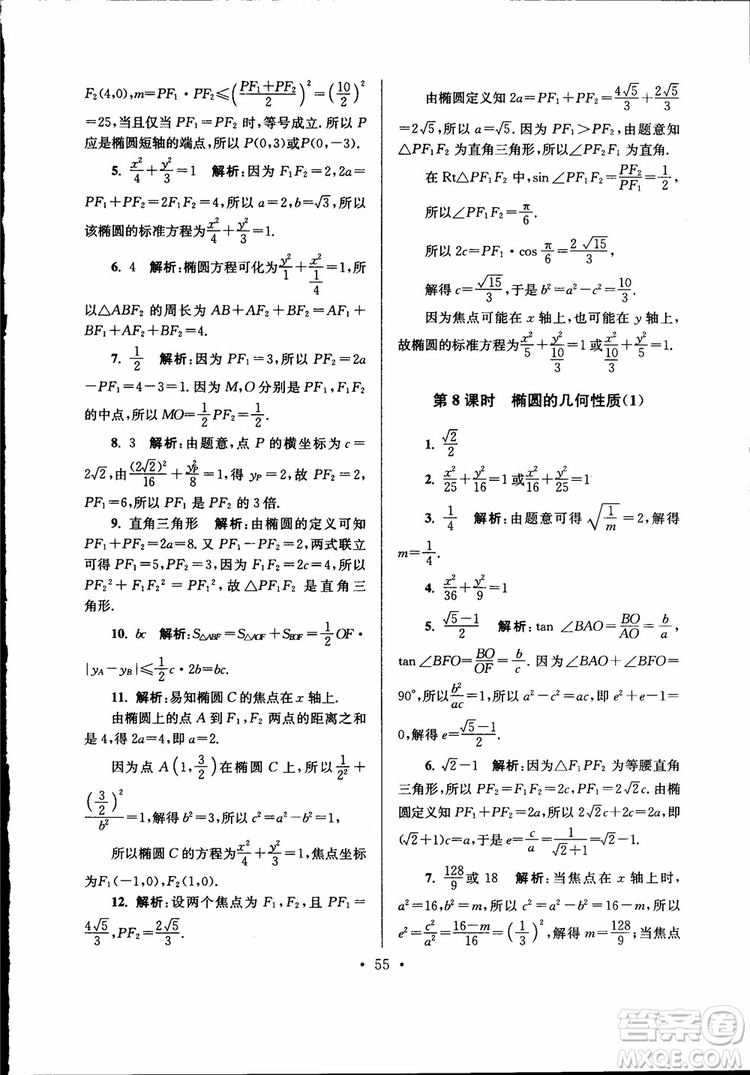 F₂(4,0),m=PF₁·PF₂≤((PF₁+PF₂)/2)²=(10/2)²
=25,当且仅当 PF₁=PF₂ 时,等号成立.所以 P
应是椭圆短轴的端点,所以 P(0,3)或 P(0,-3).
5. x²/4+y²/3=1 解析:因为 F₁F₂=2,2a=
PF₁+PF₂=2F₁F₂=4,所以 a=2,b=√3,所以
该椭圆的标准方程为 x²/4+y²/3=1.
6. 4 解析:椭圆方程可化为 x²/1+y²/(1/4)=1,所
以△ABF₂ 的周长为 AB+AF₂+BF₂=AF₁+AF₂+
BF₁+BF₂=4.
7. 1/2 解析:因为 PF₁=3,所以 PF₂=2a
-PF₁=1.因为 M,O 分别是 PF₁ 与 F₁F₂
的中点,所以 MO=1/2PF₂=1/2.
8. 3 解析:由题意,点 P 的横坐标为 c=
2√2,由(2√2)²/16+y²P/8=1,得 yP=2,所以 PF₂=2,
PF₁=6,所以 PF₁ 是 PF₂ 的 3 倍.
9. 直角三角形 解析:由椭圆的定义可知
PF₁+PF₂=2a=8.又 PF₁-PF₂=2,两式联立
可得 PF₁=5,PF₂=3.又 F₁F₂=2c=4,所以
PF₂²+F₁F₂²=PF₁²,故△PF₁F₂ 是直角三
角形.
10. bc 解析:S△ABF=S△AOF+S△BOF=1/2OF·
|yA-yB|≤1/2c·2b=bc.
11. 解析:易知椭圆 C 的焦点在 x 轴上.
由椭圆上的点 A 到 F₁,F₂ 两点的距离之和
是 4,得 2a=4,即 a=2.
因为点 A(1,3/2)在椭圆 C 上,所以 1/2²+
(3/2)²/b²=1,解得 b²=3,所以 c²=a²-b²=1,
所以椭圆 C 的方程为 x²/4+y²/3=1,焦点坐标
为F₁(-1,0),F₂(1,0).
12. 解析:设两个焦点为 F₁,F₂,且 PF₁=
4√5/3,PF₂=2√5/3.
由椭圆定义知 2a=PF₁+PF₂=4√5/3+2√5/3
=2√5,所以 a=√5.因为 PF₁>PF₂,由题意知
△PF₁F₂ 为直角三角形,所以∠PF₂F₁ 为直角.
在 Rt△PF₁F₂ 中,sin∠PF₁F₂=PF₂/PF₁=1/2,
所以∠PF₁F₂=π/6.
所以 2c=PF₁·cos π/6=2√15/3,
解得 c=√15/3,于是 b²=a²-c²=10/3.
因为焦点可能在 x 轴上,也可能在 y 轴上,
故椭圆的标准方程为 x²/5+y²/(10/3)=1 或 x²/(10/3)+y²/5=1.
第 8 课时 椭圆的几何性质(1)
1. √2/2
2. x²/25+y²/16=1 或 x²/16+y²/25=1
3. 1/4 解析:由题意可得 √(1/m)=2,解得
m=1/4.
4. x²/36+y²/9=1
5. (√5-1)/2 解析:tan∠BAO=BO/AO=b/a,
tan∠BFO=BO/OF=b/c.因为∠BAO+∠BFO=
90°,所以 b²/ac=1,得 a²-c²=ac,即 e²+e-1=
0,解得 e=(√5-1)/2.
6. √2-1 解析:因为△F₁PF₂ 为等腰直角
三角形,所以 PF₂=F₁F₂=2c,PF₁=2√2c.由椭
圆定义知 PF₁+PF₂=2a,所以 2√2c+2c=2a,即
(√2+1)c=a,于是 e=c/a=1/(√2+1)=√2-1.
7. 128/9 或 18 解析:当焦点在 x 轴上时,
a²=16,b²=m,所以 c²=a²-b²=16-m,所以
e²=c²/a²=(16-m)/16=(1/3)²,解得 m=128/9;当焦点
· 55 ·
答案圈
MXQE.COM